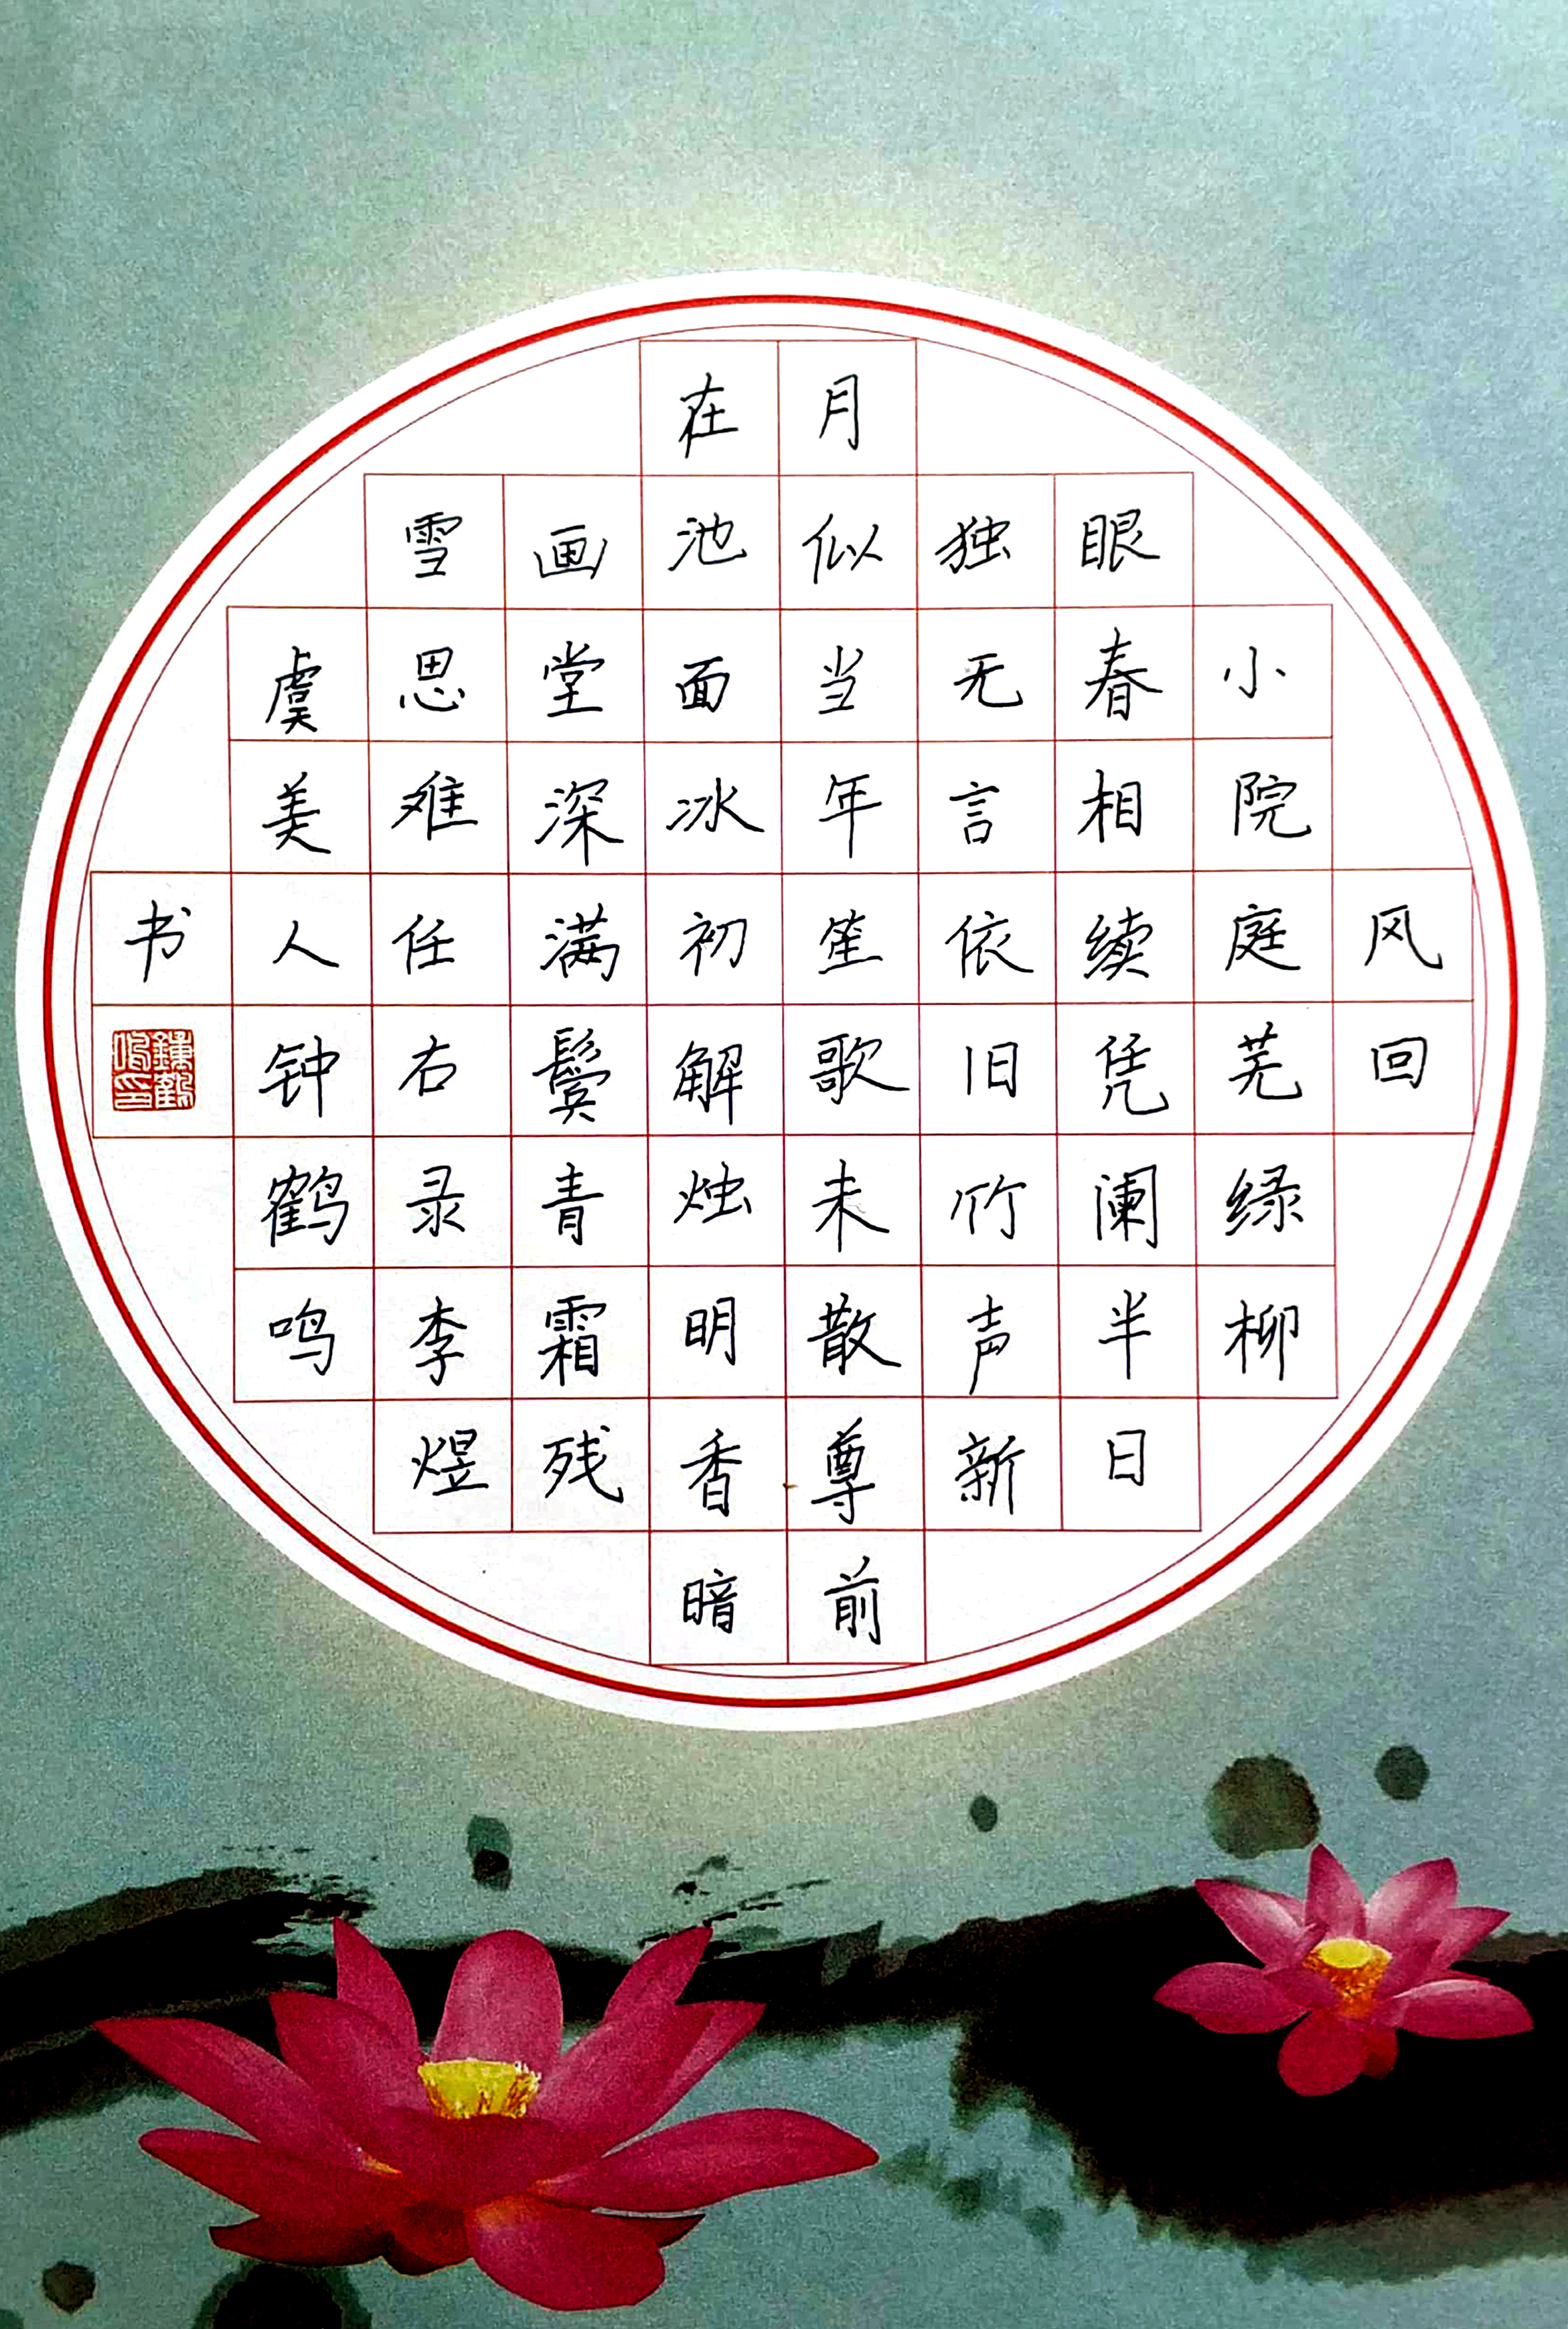 风回
小院庭芜绿柳
眼春相续凭阑半日
独无言依旧竹声新
月似当年笙歌未散尊前
在池面冰初解烛明香暗
画堂深满鬓青霜残
雪思难任右录李煜
虞美人钟鹤鸣
书
鍾鶴鳴印